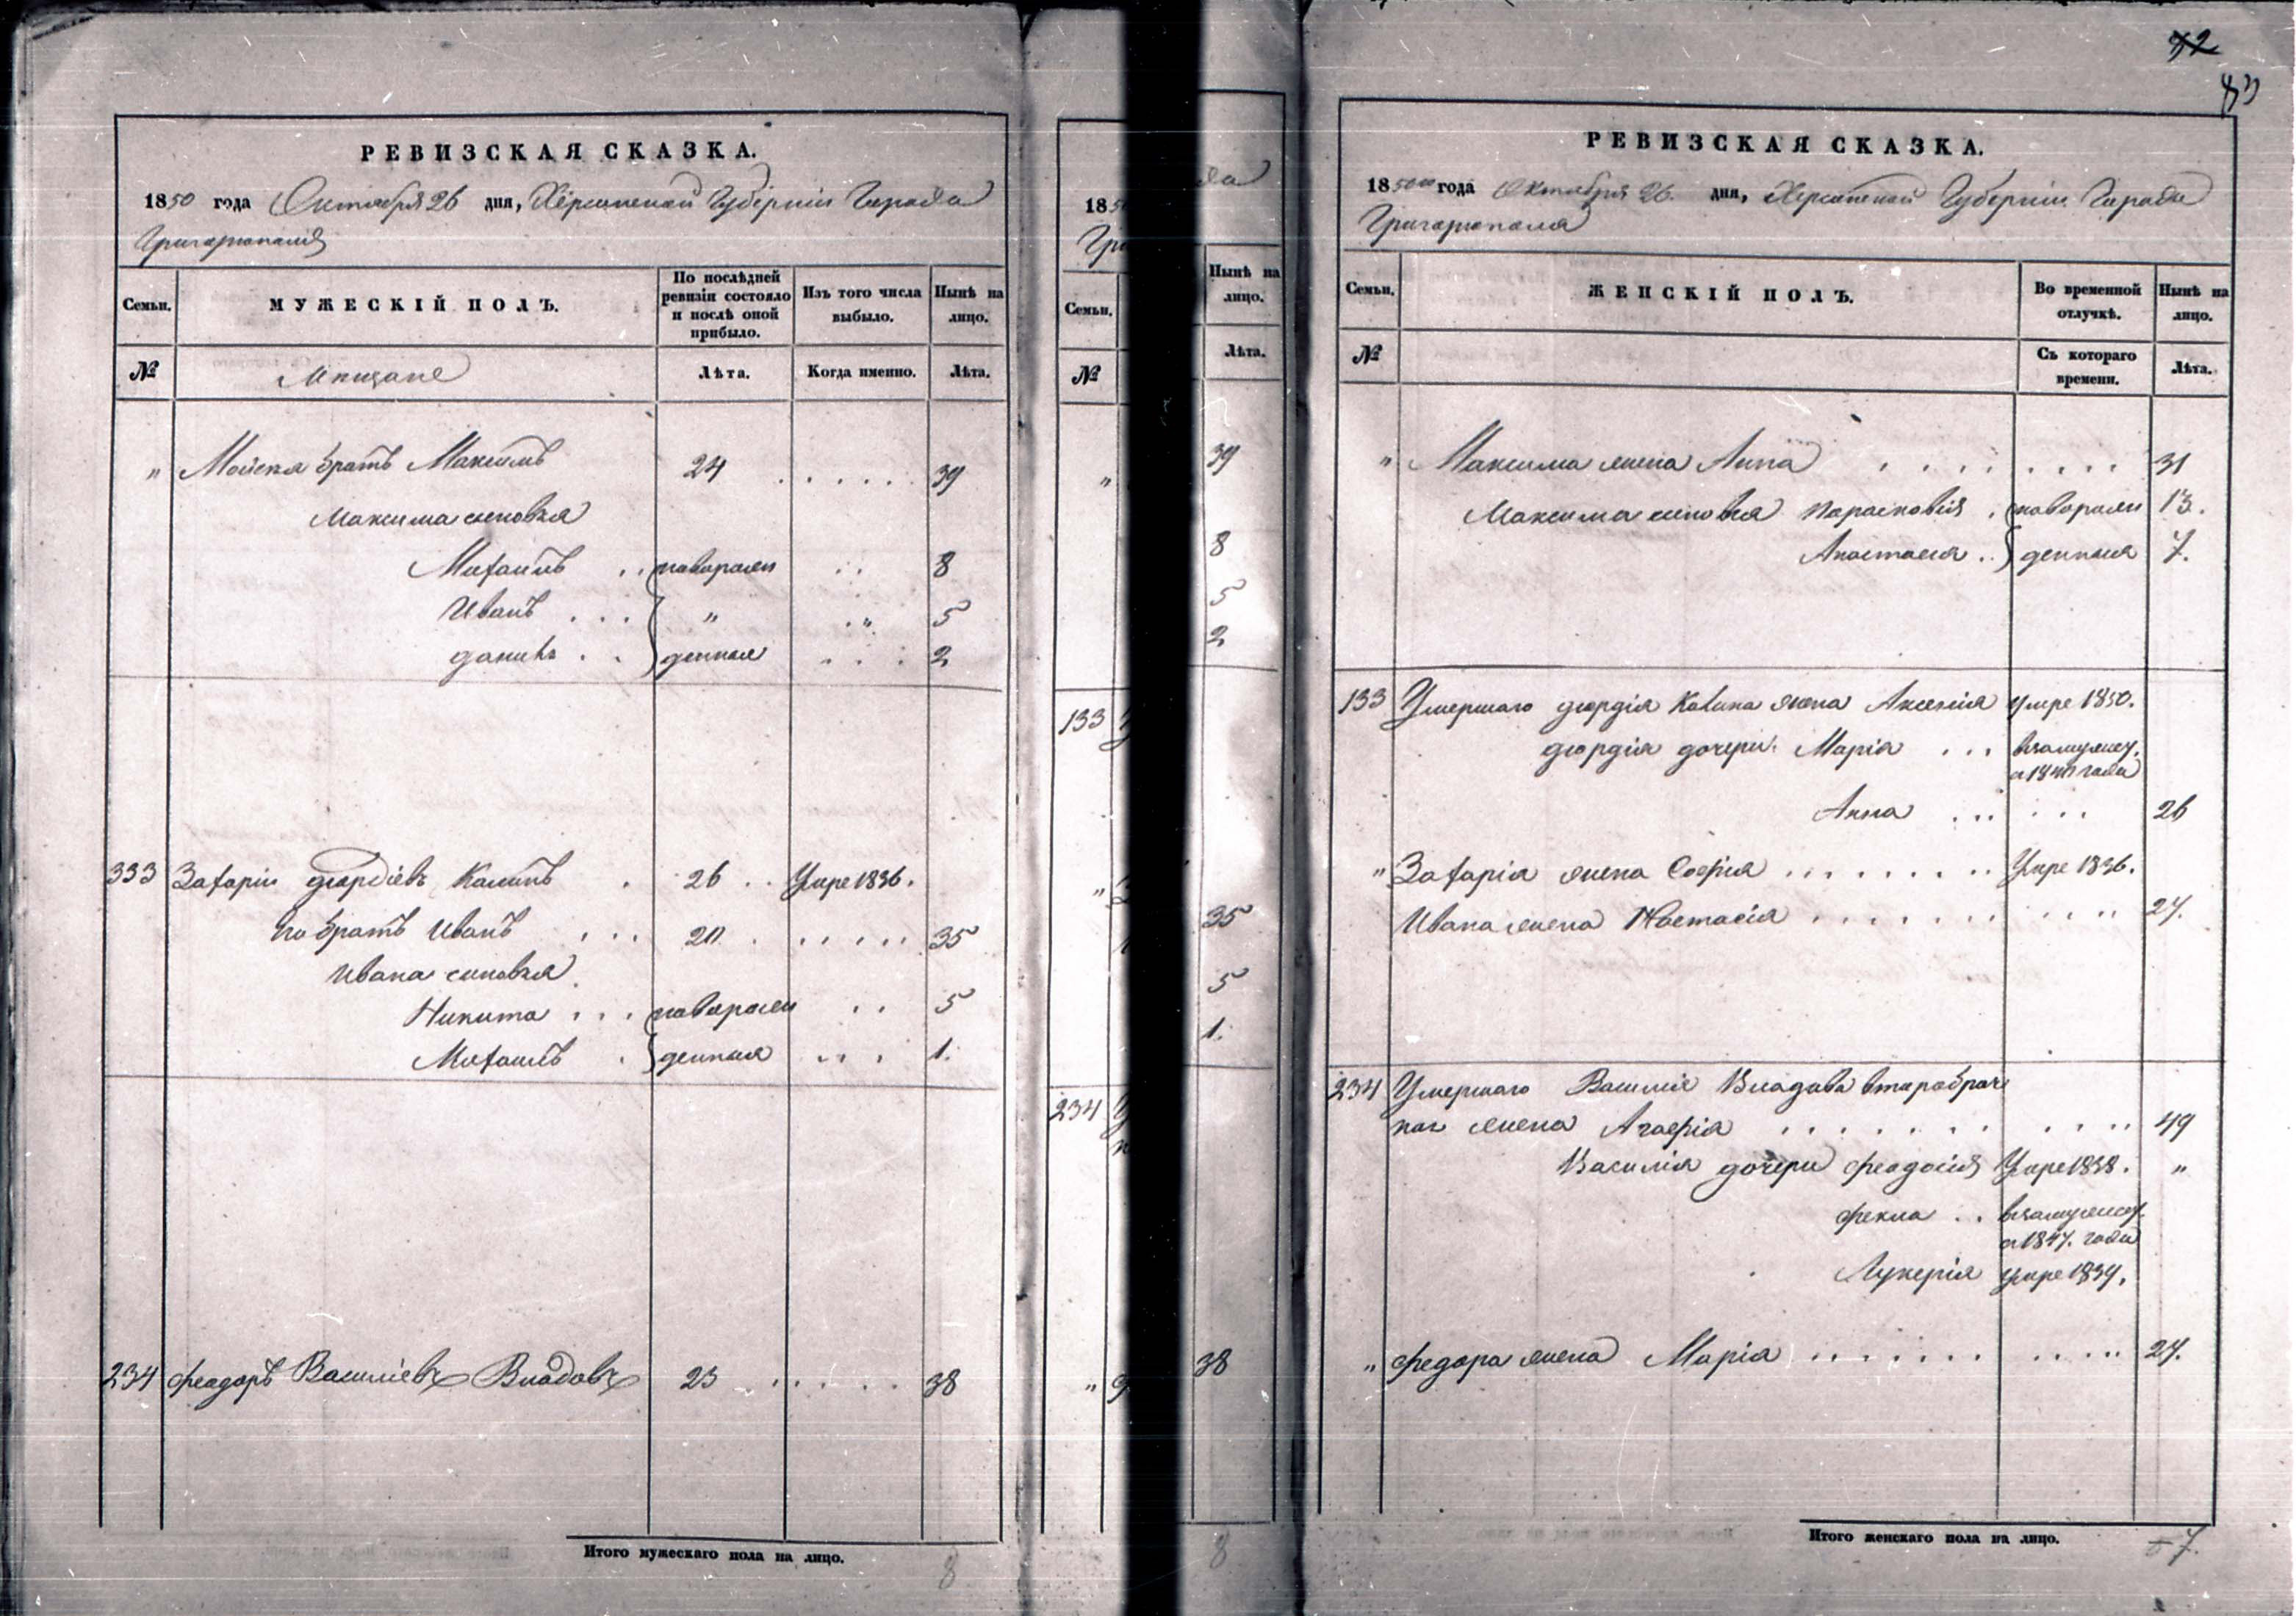 РЕВИЗСКАЯ СКАЗКА.
1850 года Октября 26 дня, Херсонской Губерніи Города
Григоріополя
Семьи. МУЖЕСКІЙ ПОЛЪ. По послѣдней ревизіи состояло и послѣ оной прибыло. Изъ того числа выбыло. Нынѣ на лицо.
№ Мещане Лѣта. Когда именно. Лѣта.
" Мойсея братъ Максимъ 24 39
Максима сыновья
Михаилъ новорож 8
Иванъ " " 5
Данилъ денныя 2
333 Захарій Георгіевъ Калинъ 26 Умре 1836.
братъ Иванъ 20 35
Ивана сыновья
Никита новорож 5
Михаилъ денныя 1.
234 Феодоръ Василіевъ Владовъ 23 38
Итого мужескаго пола на лицо. 8
185
Гри
Семьи.
№
"
133
"
234
"
да
Нынѣ на лицо.
Лѣта.
39
8
5
2
35
5
1.
38
8
72
83
РЕВИЗСКАЯ СКАЗКА.
1850го года Октября 26. дня, Херсонской Губерніи Города
Григоріополя
Семьи. ЖЕНСКІЙ ПОЛЪ. Во временной отлучкѣ. Нынѣ на лицо.
№ Съ котораго времени. Лѣта.
" Максима жена Анна 31
Максима Парасковія новорож 13.
Анастасія денныя 7.
133 Умершаго Георгія Калина жена Аксенія умре 1850.
Георгія дочери Марія взамужес.
года
Анна 26
" Захарія жена Софія Умре 1836.
Ивана жена Настасія 27.
234 Умершаго Василія Владова второбрач
ная жена Агафія 49
Василія дочери Феодосія Умре 1838. "
Фекла взамужес.
1847. года
Лукерія умре 1839.
" Федора жена Марія 27.
Итого женскаго пола на лицо. 7.